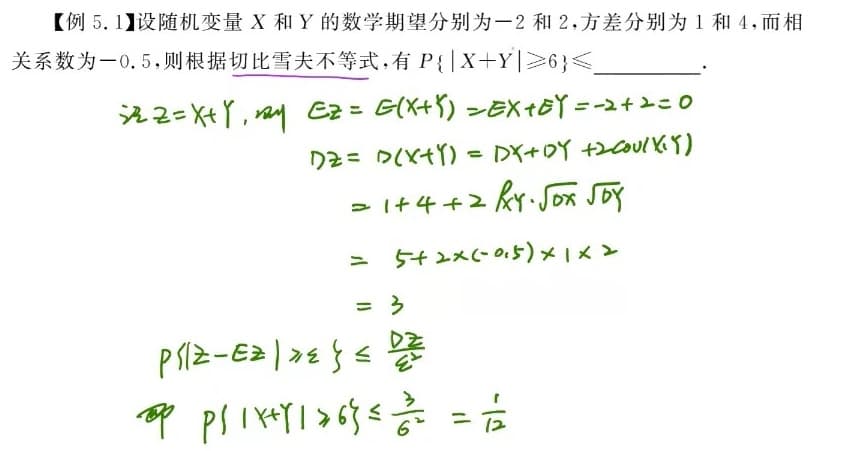 【例 5.1】设随机变量 X 和 Y 的数学期望分别为－2 和 2,方差分别为 1 和 4,而相
关系数为－0.5,则根据切比雪夫不等式,有 P{|X+Y|≥6}≤________.
设 Z=X+Y, 则 EZ = E(X+Y) = EX+EY = -2+2=0
DZ = D(X+Y) = DX+DY +2cov(X,Y)
= 1+4+2 ρXY·√DX √DY
= 5+2×(-0.5)×1×2
= 3
P{|Z-EZ|≥ε} ≤ DZ/ε²
即 P{|X+Y|≥6} ≤ 3/6² = 1/12